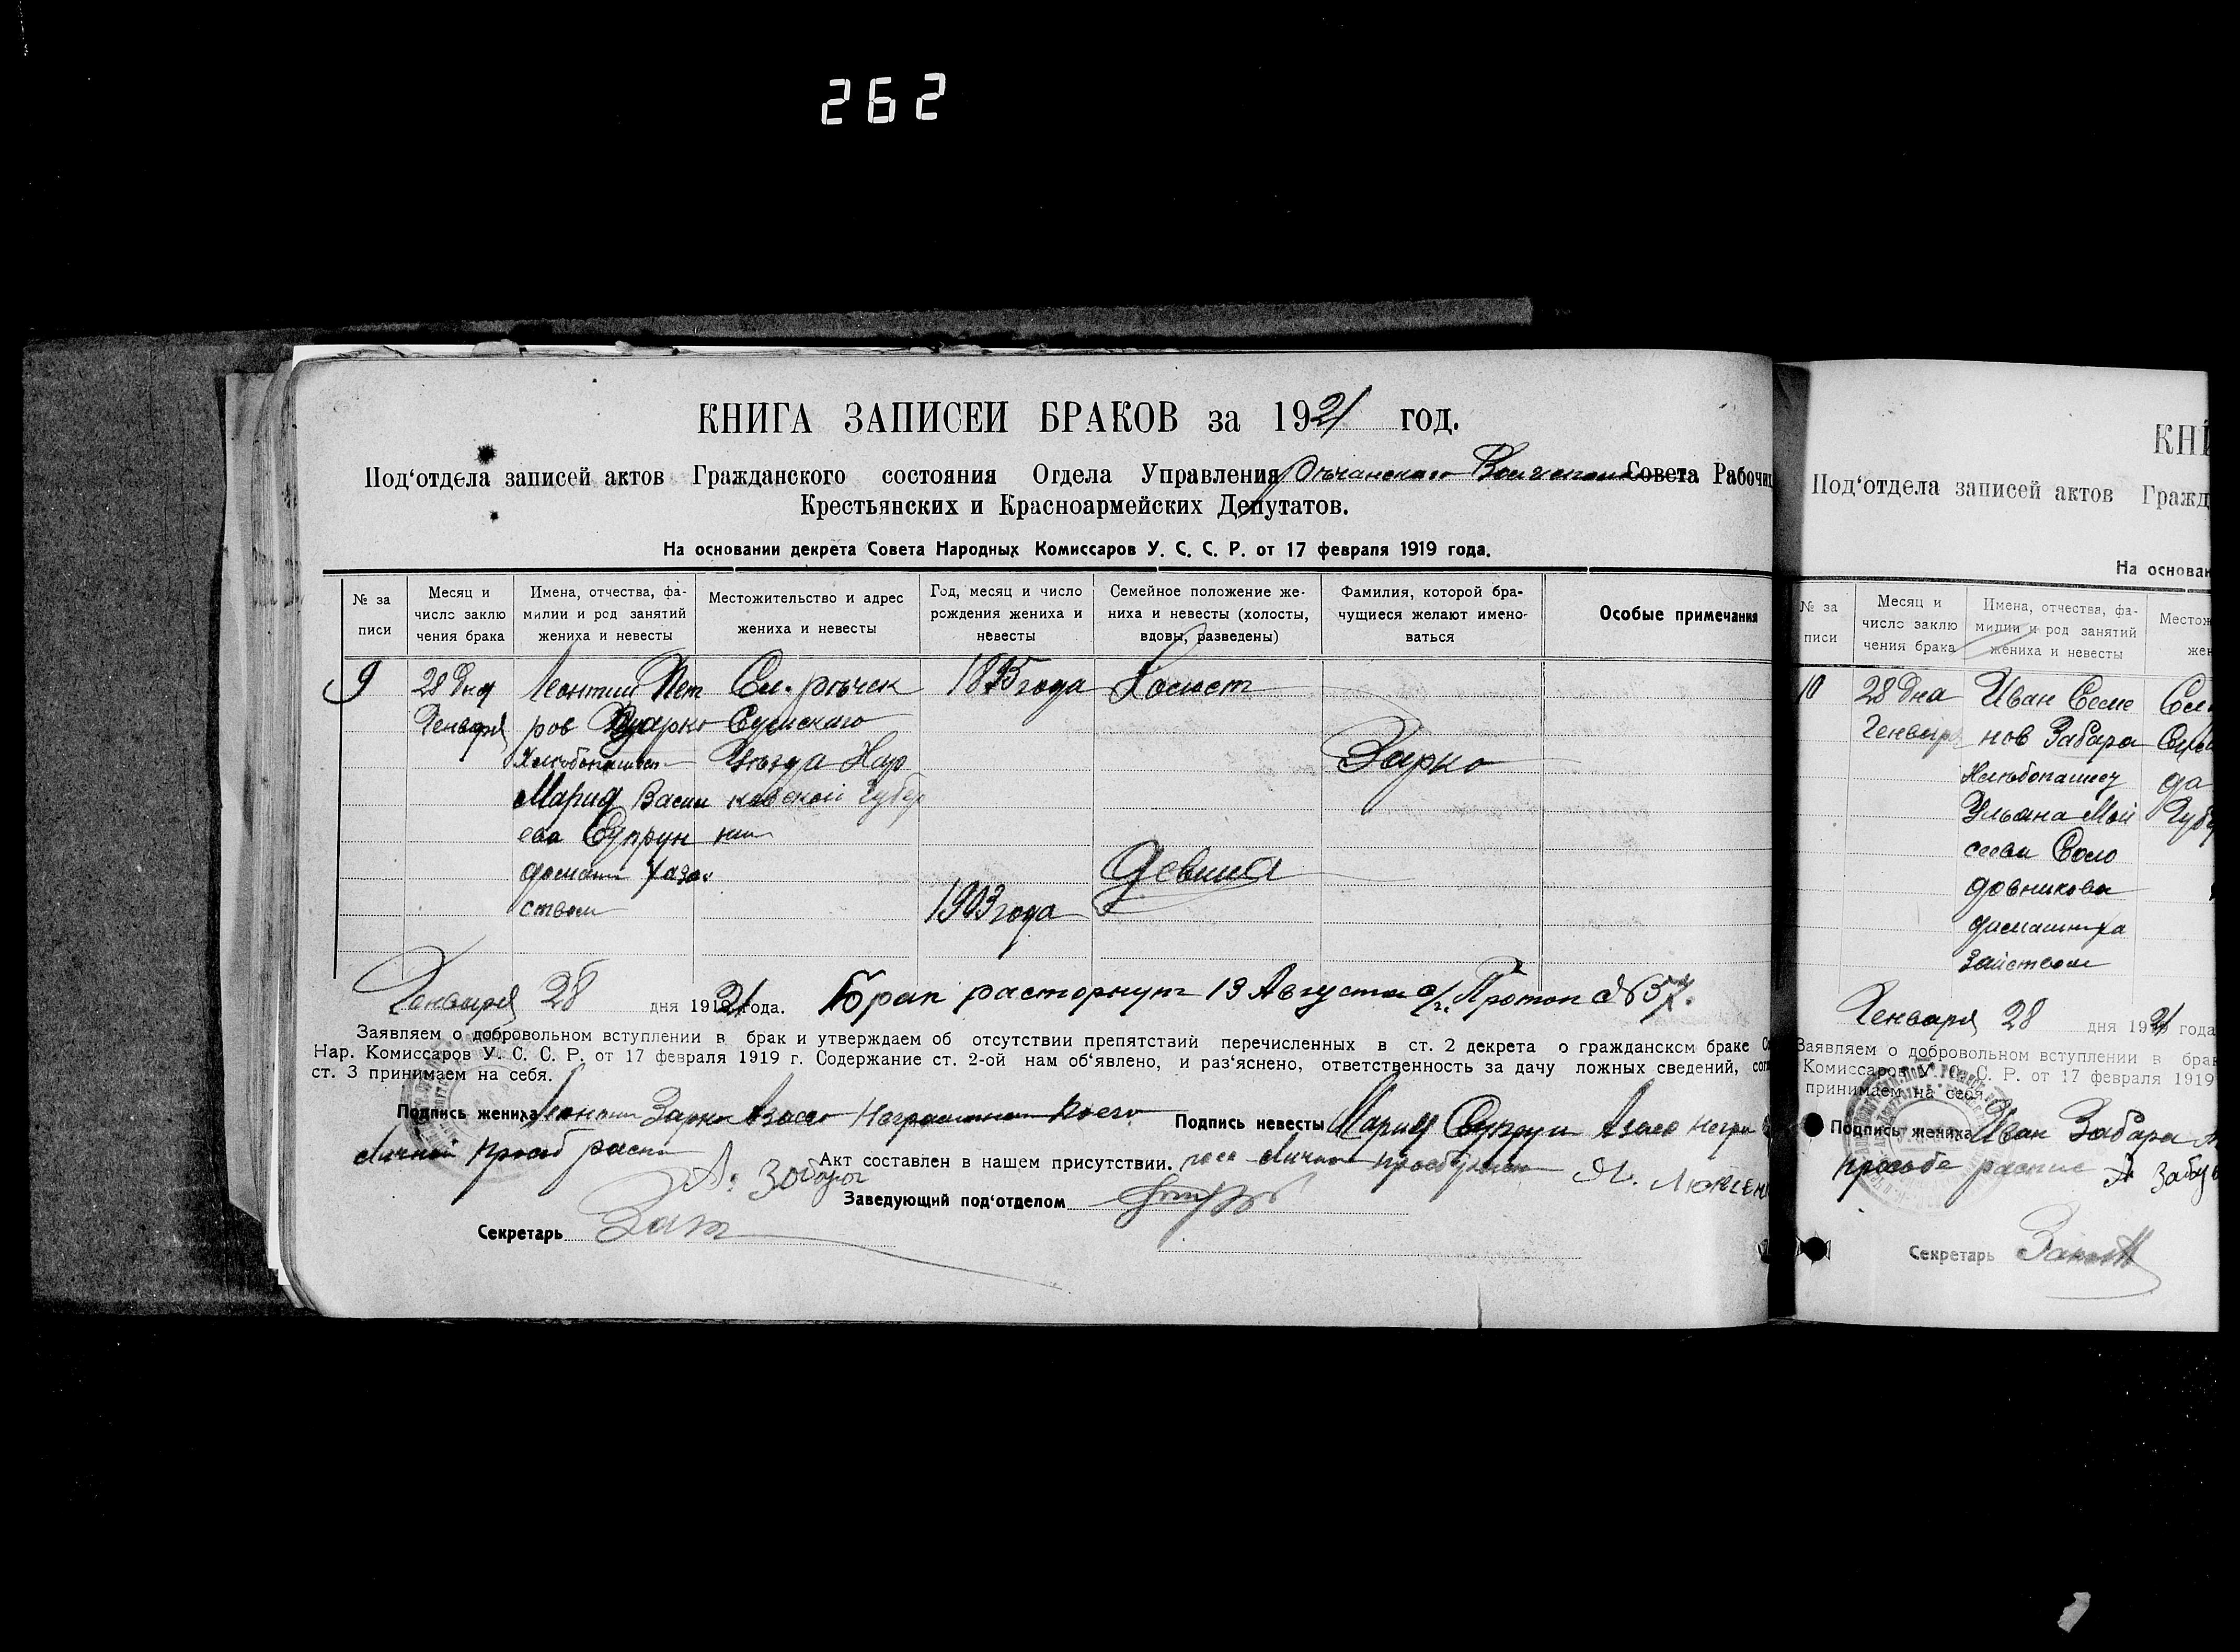 262
КНИГА ЗАПИСЕЙ БРАКОВ за 1921 год.
Под‘отдела записей актов Гражданского состояния Отдела Управления Речанского Совета Рабочи
Крестьянских и Красноармейских Депутатов.
На основании декрета Совета Народных Комиссаров У. С. С. Р. от 17 февраля 1919 года.
№ за писи
Месяц и число заклю чения брака
Имена, отчества, фа- милии и род занятий жениха и невесты
Местожительство и адрес жениха и невесты
Год, месяц и число рождения жениха и невесты
Семейное положение же- ниха и невесты (холосты, вдовы, разведены)
Фамилия, которой бра- чущиеся желают имено- ваться
Особые примечания
9 28 дня Леонтий Пет Сл. Речек 1895 года Холост
Генваря ров Зарко Сумского
Хлебопашец Уезда Хар Зарко
Мария Васи ковской губер
ева Супрун нии
домашн хозя Девица
ством 1903 года
Генваря 28 дня 1921 года. Брак расторгнут 13 Августа с/г. Проток №57.
Заявляем о добровольном вступлении в брак и утверждаем об отсутствии препятствий перечисленных в ст. 2 декрета о гражданском браке С
Нар. Комиссаров У. С. С. Р. от 17 февраля 1919 г. Содержание ст. 2-ой нам об‘явлено, и раз‘яснено, ответственность за дачу ложных сведений, сог
ст. 3 принимаем на себя.
Подпись жениха Леонтий Зарко А за его Неграмотного по его Подпись невесты Мария Супрун А за ее негра
личной прозб распи
Акт составлен в нашем присутствии. по ее личной прозбе
Заведующий под‘отделом
Секретарь
КНИ
Под‘отдела записей актов Гражд
На основан
№ за писи
Месяц и число заклю чения брака
Имена, отчества, фа- милии и род занятий жениха и невесты
Местож жен
10 28 дня Иван Семе Сл.
Генваря нов Забара Сум
Хлебопашец да
Ульяна Мой Губ
сеева Соло
довникова
домашн хо
зайством
Генваря 28 дня 1921 года
Заявляем о добровольном вступлении в брак
Комиссаров У. С. С. Р. от 17 февраля 1919
принимаем на себя.
Подпись жениха Иван Забара А
прозбе распис
Секретарь